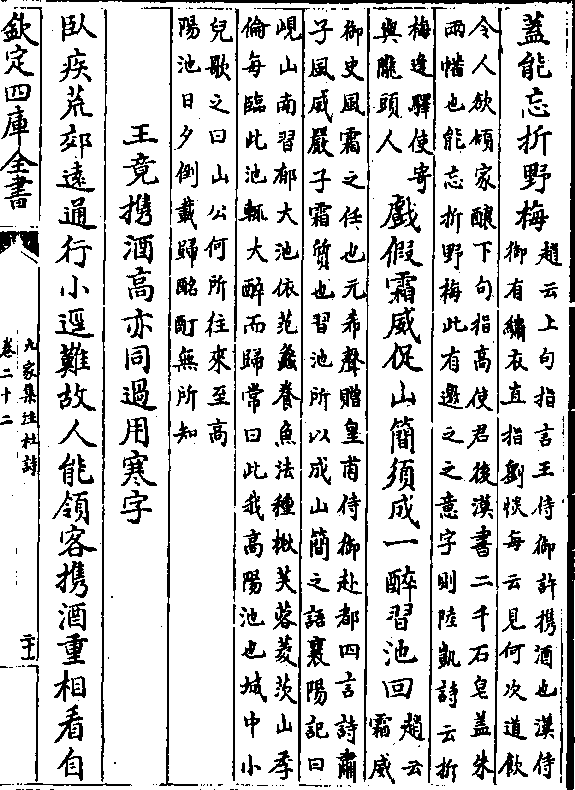 蓋能忘折野梅
趙云上句指言王侍御許携酒也漢侍
御有繡衣直指劉惔每云見何次道飲
令人欲傾家釀下句指高使君後漢書二千石皂蓋朱
兩幡也能忘折野梅此有邀之之意字則陸凱詩云折
梅逢驛使寄
與隴頭人
戲假霜威促山簡須成一醉習池回
趙云
霜威
御史風霜之任也元希聲贈皇甫侍御赴都四言詩肅
子風威嚴子霜質也習池所以成山簡之語襄陽記曰
峴山南習郁大池依范蠡養魚法種楸芙蓉菱茨山季
倫每臨此池輒大醉而歸常曰此我高陽池也城中小
兒歌之曰山公何所往來至高
陽池日夕倒載歸酩酊無所知
王竟携酒高亦同過用寒字
臥疾荒郊遠通行小逕難故人能領客携酒重相看自
欽定四庫全書
九家集注杜詩
卷二十二
二十一